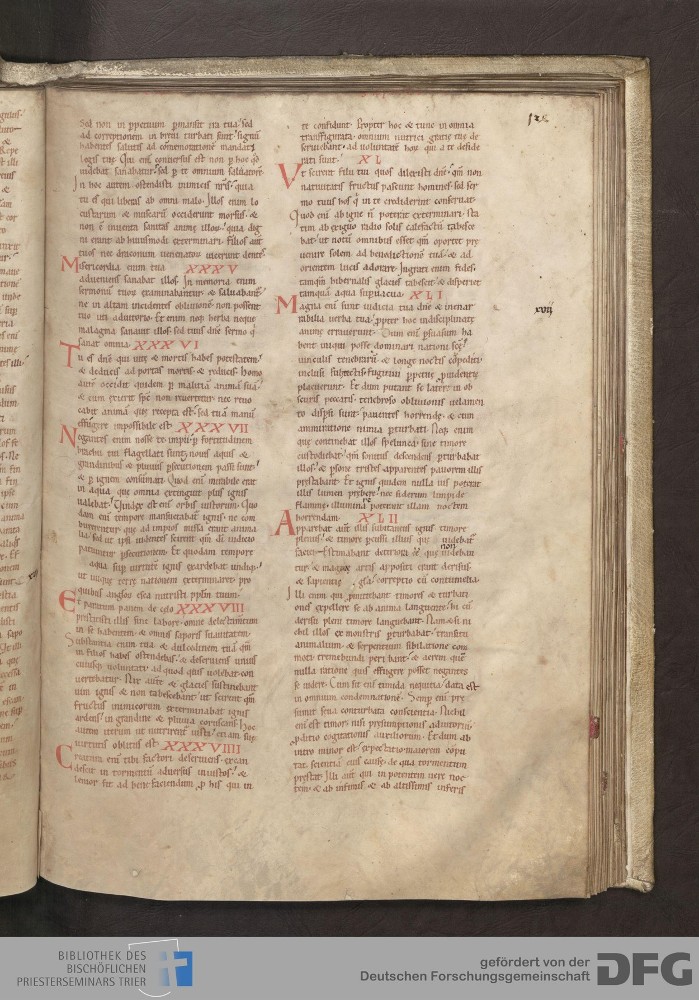 Sed non in ppetuum pmansit ira tua sed
ad correptionem in brevi turbati sunt signu
habentes salutis ad comemoratione mandati
legis tue Qui eni conversus est non p hoc qd
videbat sanabatur sed p te omnium salvatore
In hoc autem ostendisti inimicis nris quia
tu es qui liberas ab omni malo Illos enim lo
custarum & muscaru occiderunt morsus &
non e inventa sanitas anime illoru quia dig
ni erant ab huiusmodi exterminari filios aut
tuos nec draconum venenatoru vicerunt dentes
Misericordia enim tua XXXV
adveniens sanabat illos In memoria enim
sermonu tuoru examinabantur & salvabant
ne in altam incidentes oblivione non possent
tuo uti adiutorio Et enim neq herba neque
malagma sanavit illos sed tuus dne sermo q
sanat omnia XXXVI
Tu es dne qui vite & mortis habes potestatem
& deducis ad portas mortis & reducis homo
aute occidit quidem p malitia anima sua
& cum exierit sps non revertetur nec revo
cabit anima que recepta est sed tua manu
effugere impossibile est XXXVII
Negantes enim nosse te impii p fortitudinem
brachii tui flagellati sunt novis aquis &
grandinibus & pluviis psecutionem passi sunt
& p ignem consumati Quod eni mirabile erat
in aqua que omnia extinguit plus ignis
valebat Vindex est eni orbis iustorum Quo
dam eni tempore mansuetabat ignis ne com
burerentur que ad impios missa erant anima
lia sed ut ipsi videntes scirent qm di iudicio
patiuntur psecutionem Et quodam tempore
aqua sup virtute ignis exardebat undiq
ut iniquę terrę nationem exterminaret pro
quibus anglos esca nutristi pplm tuum
Et paratum panem de celo XXXVIII
prestitisti illis sine labore omne delectamtum
in se habentem & omnis saporis suavitatem
Substantia enim tua & dulcedinem tua qm
in filios habes ostendebas & deserviens unius
cuiusq voluntati ad quod quis volebat con
vertebatur Nix aute & glacies sustinebant
vim ignis & non tabescebant ut scirent qm
fructus inimicorum exterminabat ignis
ardens in grandine & pluvia coruscans Hoc
autem iterum ut nutrirent iusti etiam sue
virtutis oblitus est XXXVIIII
Creatura eni tibi factori deserviens excan
descit in tormentu adversus iniustos &
lenior fit ad bene faciendum p his qui in
te confidunt Propter hoc & tunc in omnia
transfigurata omnium nutrici gratie tue de
serviebant ad voluntate horu qui a te deside
rati sunt XL
Ut scirent filii tui quos dilexisti dne qm non
nativitatis fructus pascunt homines sed ser
mo tuus hos q in te crediderint conservat
Quod eni ab igne n poterat exterminari sta
tim ab exiguo radio solis calefactu tabesce
bat ut notu omnibus esset qm oportet pre
venire solem ad benedictione tua & ad
orientem lucis adorare Ingrati enim fides
tamqua hibernalis glacies tabescet & disperiet
tamquam aqua supvacua XLI
Magna eni sunt iudicia tua dne & inenar
rabilia verba tua propter hoc indisciplinate
anime erraverunt Dum eni psuasum ha
bent iniqui posse dominari nationi sce
vinculis tenebraru & longe noctis copediti
inclusi sub tectis fugitivi ppetue pvidentie
placuerunt Et dum putant se latere in ob
scuris peccatis tenebroso oblivionis velamen
to dispsi sunt paventes horrende & cum
ammiratione nimia pturbati Neq enim
que continebat illos spelunca sine timore
custodiebat qm sonitus descendens pturbabat
illos & psone tristes apparentes pavorem illis
prestabant Et ignis quidem nulla vis poterat
illis lumen prebere nec siderum limpide
flamme illuminare poterant illam noctem
horrendam XLII
Apparebat aut illis subitaneus ignis timore
plenus & timore pcussi illius que non videbat
faciei Estimabant deteriora ee que videban
tur & magice artis appositi erant derisus
& sapientie glae correptio cu contumelia
Illi enim qui pmittebant timores & turbati
ones expellere se ab anima languente hi cu
derisu pleni timore languebant Nam & si ni
chil illos ex monstris pturbabat transitu
animalium & serpentum sibilatione com
moti tremebundi peribant & aerem que
nulla ratione quis effugere posset negantes
se videre Cum sit eni timida nequitia data est
in omnium condemnatione Semp eni pre
sumit seva conturbata conscientia Nichil
eni est timor nisi presumptionis adiutoriu
pditio cogitationis auxiliorum Et dum ab
intro minor est expectatio maiorem copu
tat scientia eius cause de qua tormentum
prestat Illi aut qui inpotentem vere noc
tem & ab infimis & ab altissimis inferis
xvij
BIBLIOTHEK DES
BISCHÖFLICHEN
PRIESTERSEMINARS TRIER
gefördert von der
Deutschen Forschungsgemeinschaft DFG